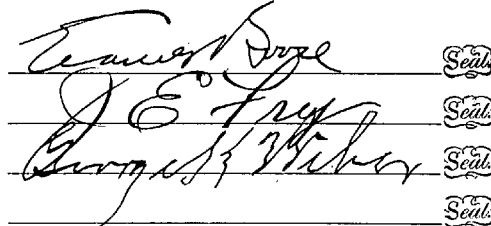 Frances Boose Seal
J E Frey Seal
George K Weber Seal
Seal